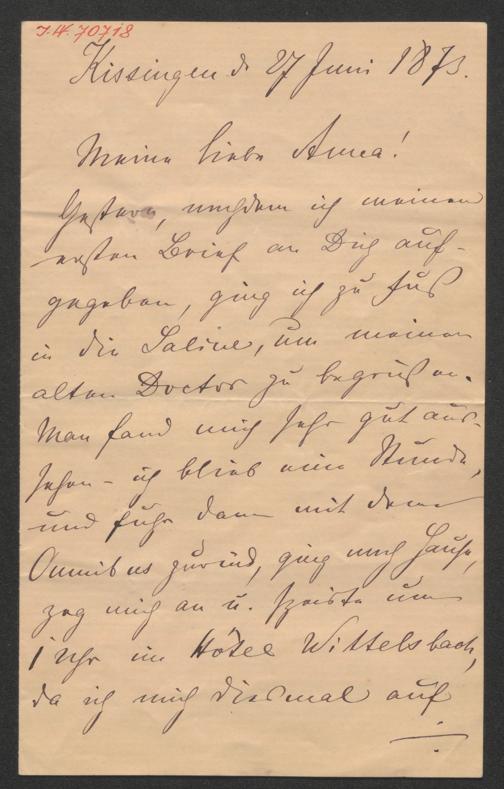 J.N. 70718
Kissingen d. 27 Juni 1873.
Meine liebe Anna!
Gestern, nachdem ich meinen
ersten Brief an Dich auf-
gegeben, ging ich zu Fuß
in die Saline, um meinen
alten Doctor zu begrüßen.
Man fand mich sehr gut aus-
sehen – ich blieb eine Stunde,
und fuhr dann mit dem
Omnibus zurück, ging nach Hause,
zog mich an u. speiste um
1 Uhr im Hôtel Wittelsbach,
da ich mich diesmal auf